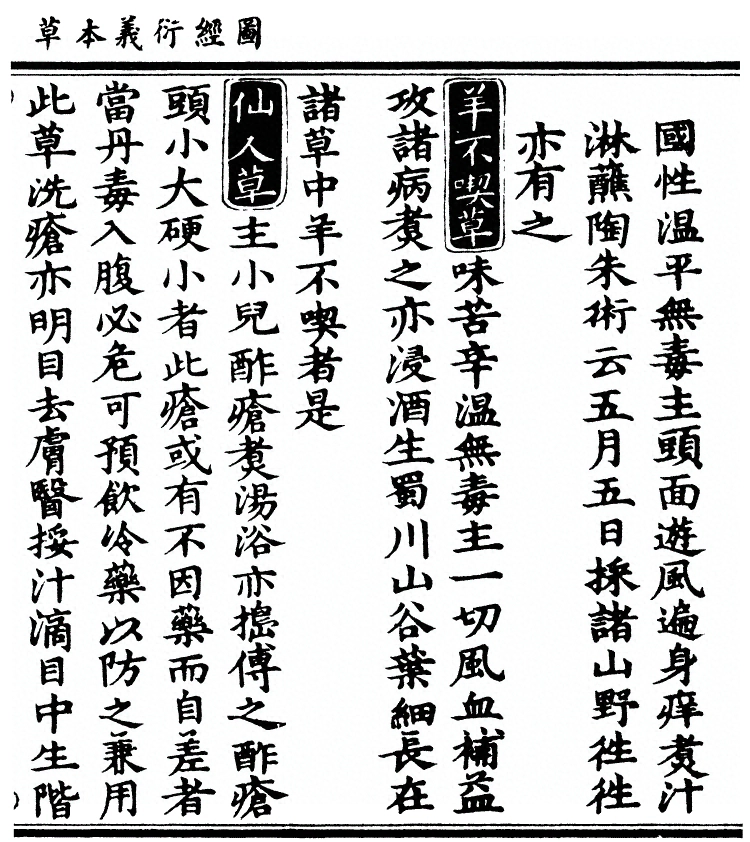 圖經衍義本草
國性温平無毒主頭面遊風遍身痒煑汁
淋蘸陶朱術云五月五日採諸山野徃徃
亦有之
羊不喫草味苦辛温無毒主一切風血補益
攻諸病煑之亦浸酒生蜀川山谷葉細長在
諸草中羊不喫者是
仙人草主小兒酢瘡煑湯浴亦搗傅之酢瘡
頭小大硬小者此瘡或有不因藥而自差者
當丹毒入腹必危可預飲冷藥以防之兼用
此草洗瘡亦明目去膚醫挼汁滴目中生階